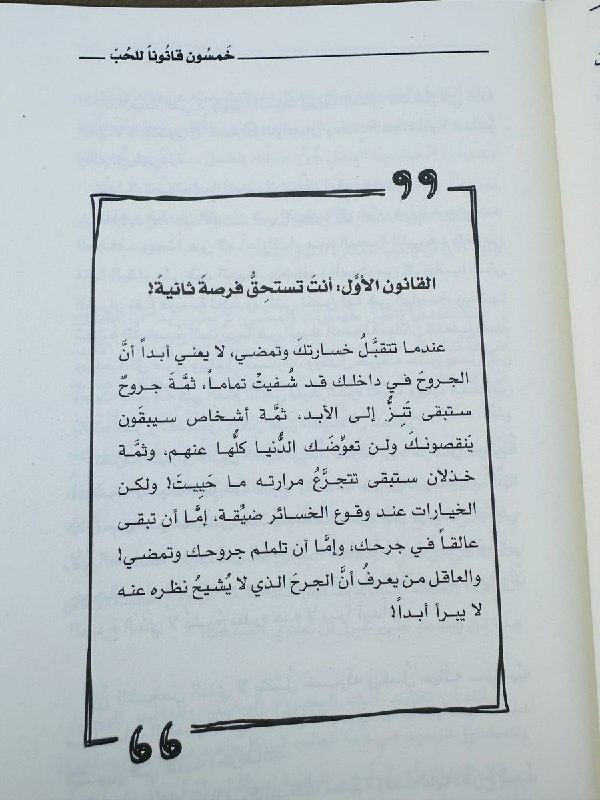 خَمسُون قانُوناً للحُبّ
القانون الأوَّل: أنتَ تستحِقُّ فرصةً ثانيةً!
عندما تتقبَّلُ خسارتكَ وتمضي، لا يعني أبداً أنَّ
الجروحَ في داخلك قد شُفيتْ تماماً، ثمَّةَ جروحٌ
ستبقى تَنِزُّ إلى الأبد، ثمَّة أشخاص سيبقَون
يَنقصونكَ ولن تعوِّضَك الدُّنيا كلُّها عنهم، وثمَّة
خذلان ستبقى تتجرَّعُ مرارته ما حَيِيتَ! ولكن
الخيارات عند وقوع الخسائر ضيِّقة، إمَّا أن تبقى
عالقاً في جرحك، وإمَّا أن تلملم جروحك وتمضي!
والعاقل من يعرفُ أنَّ الجرحَ الذي لا يُشيحُ نظره عنه
لا يبرأ أبداً!